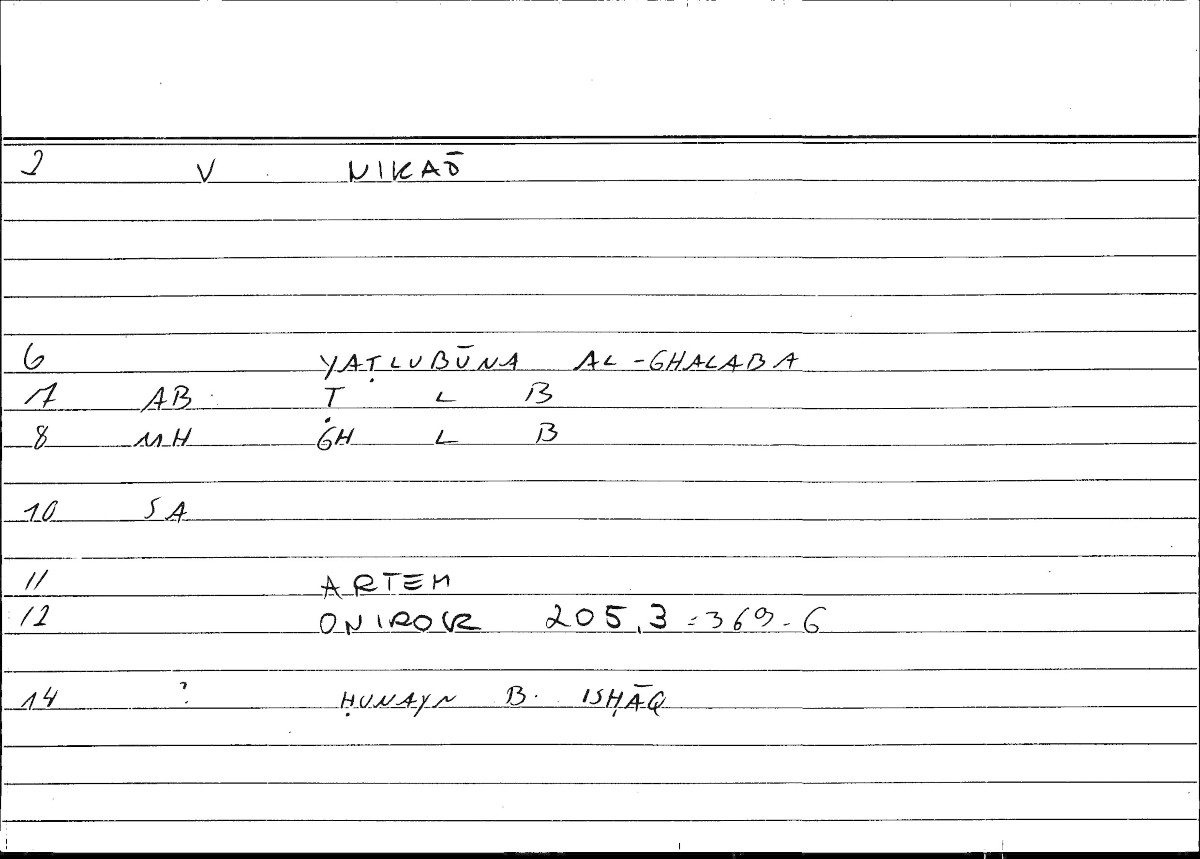 2 V NIKAŌ
6 YAṬLUBŪNA AL-GHALABA
7 AB Ṭ L B
8 MH GH L B
10 SA
11 ARTEM
12 ONIROCR 205,3 = 369-6
14 ? ḤUNAYN B. ISḤĀQ